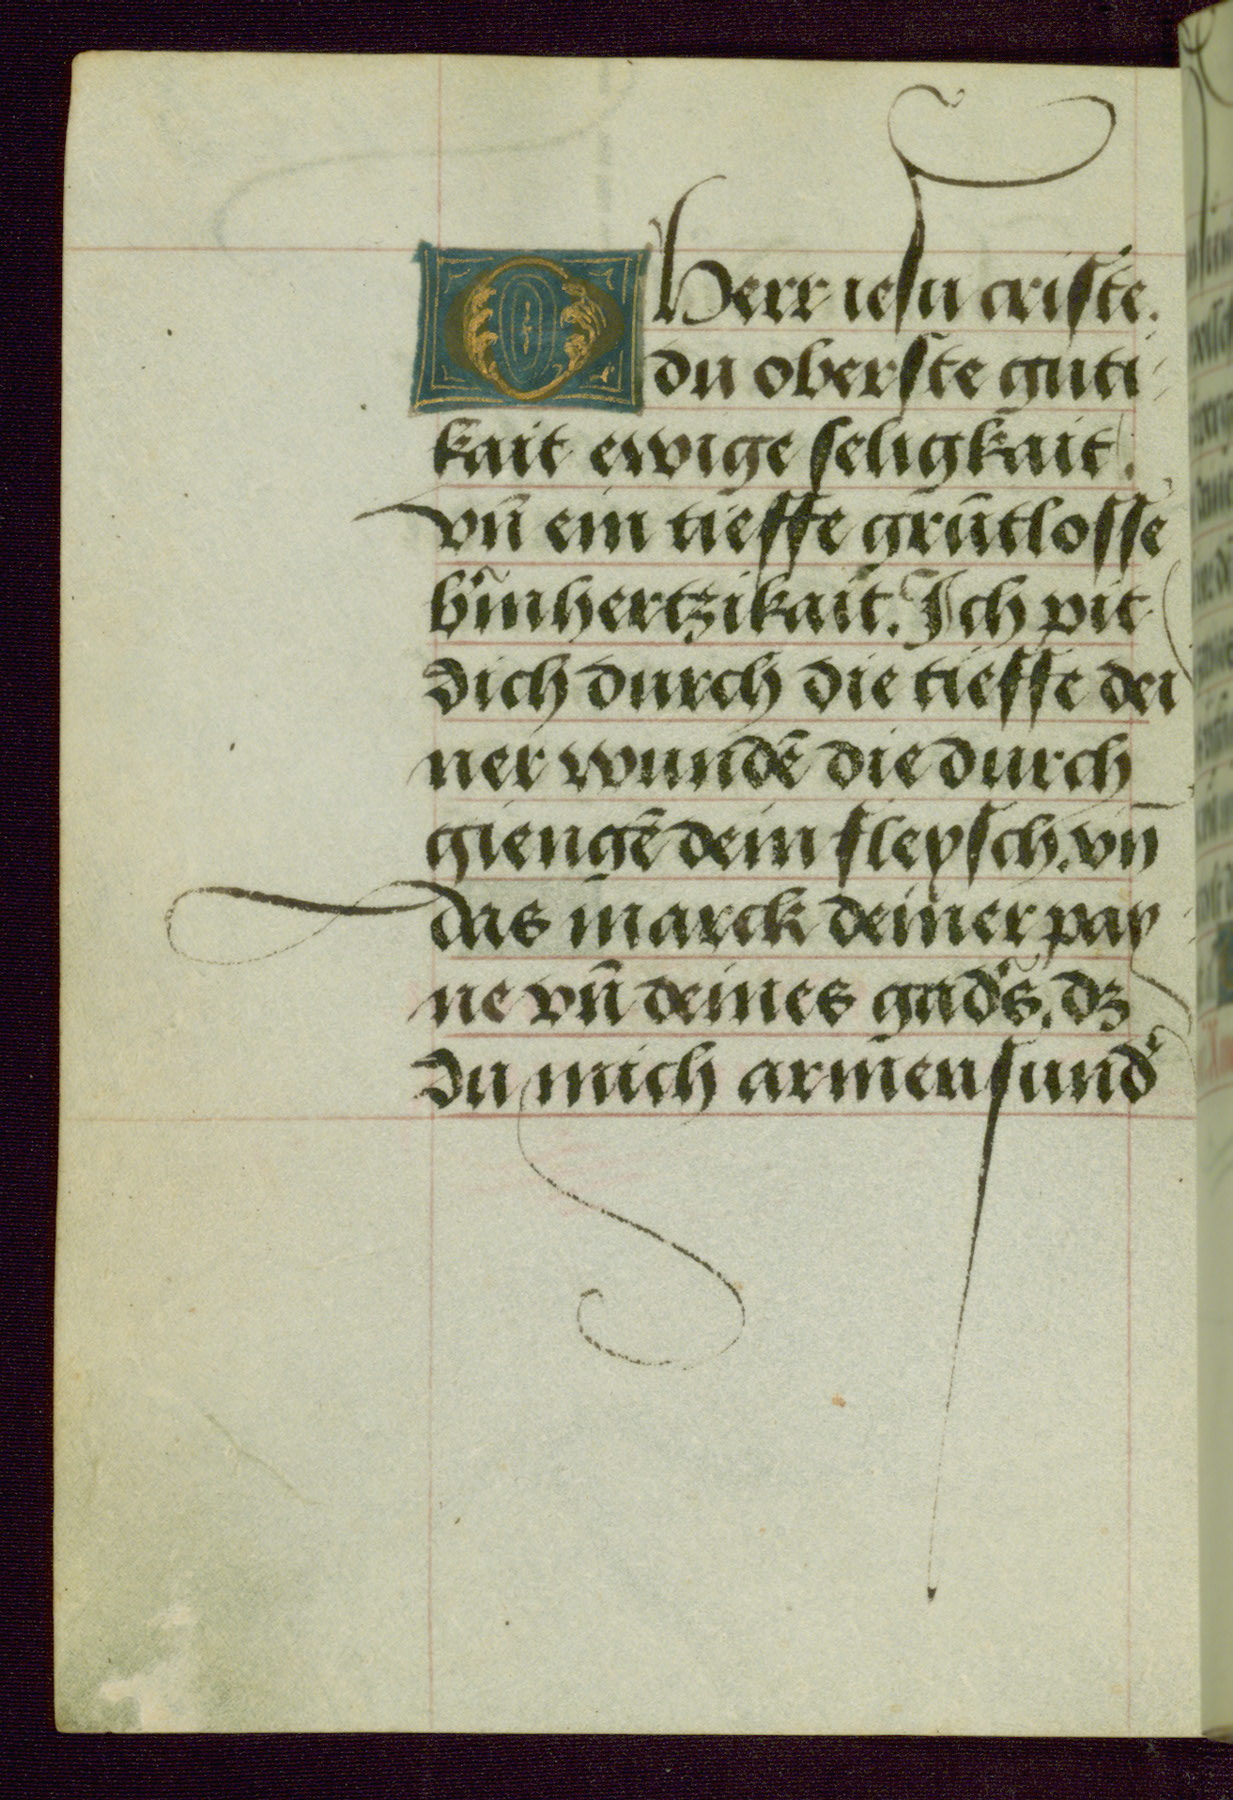 O herr iesu criste.
du oberste guti-
kait ewige seligkait.
vn̄ ein tieffe grūtlosse
b'mhertzikait. Ich pit
dich durch die tieffe dei
ner wundē die durch
giengē dein fleysch. vn̄
das marck deiner pay
ne vn̄ deines gead's. dz
du mich armen sund'